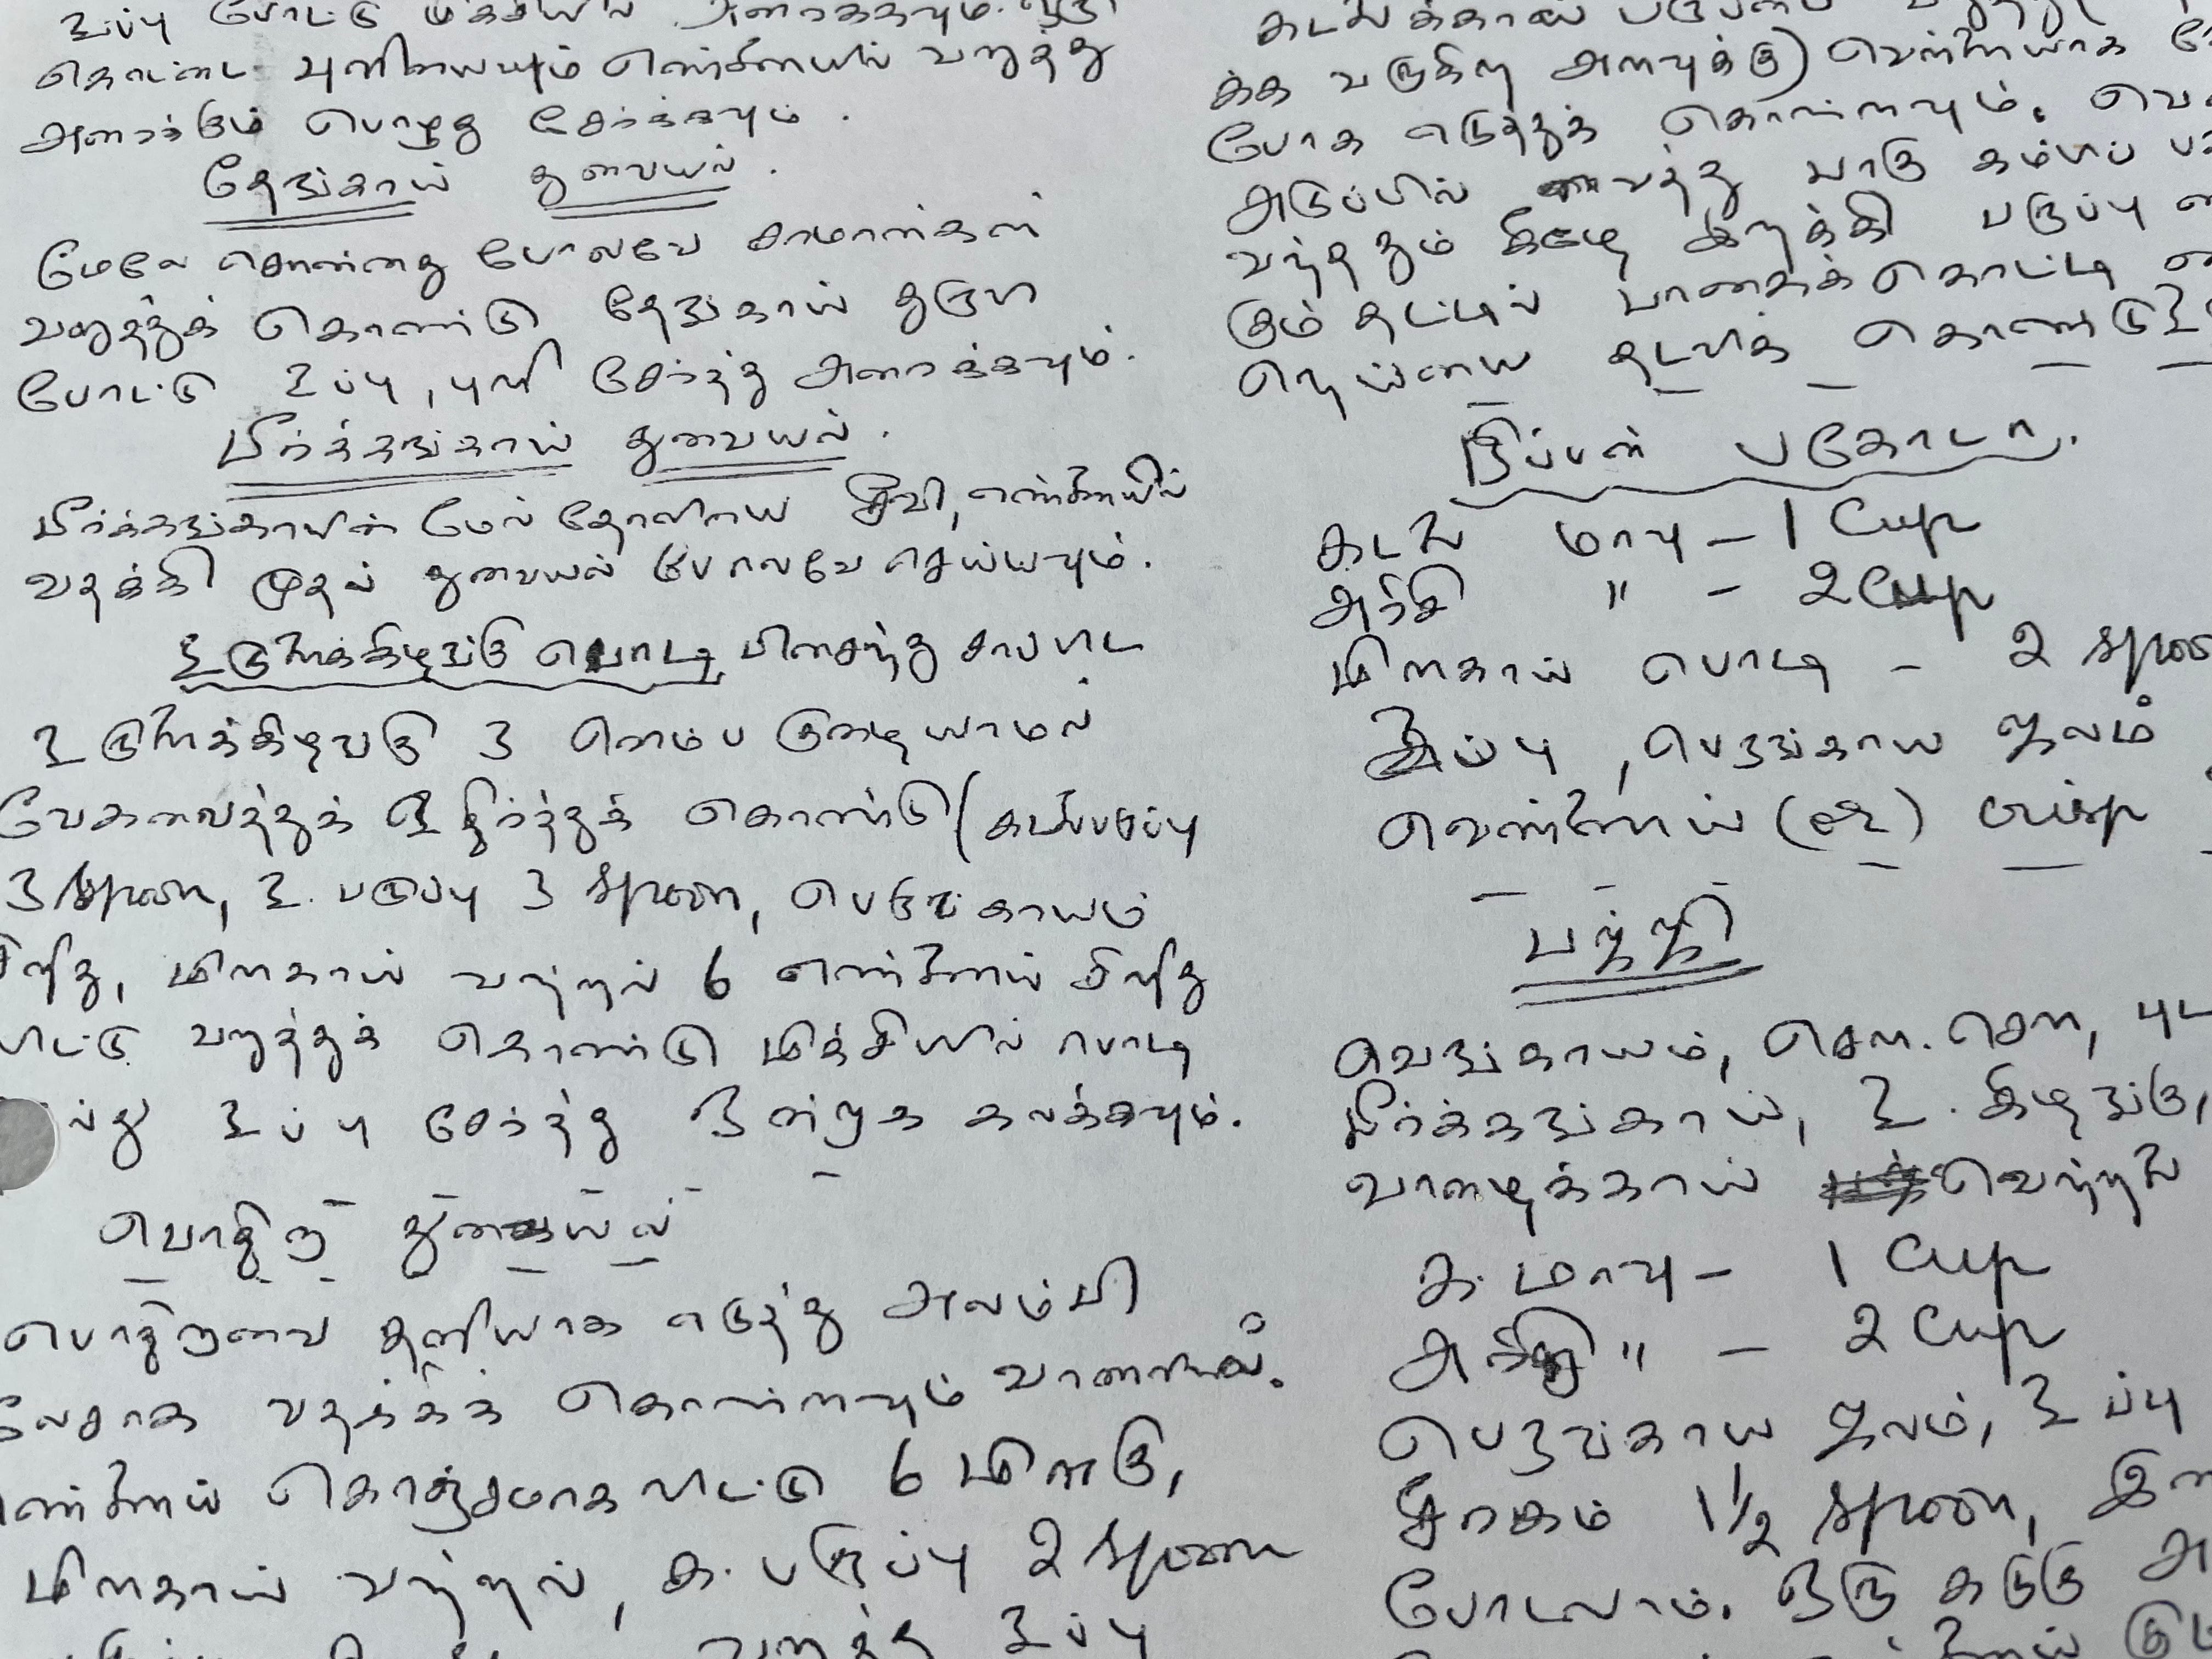 உப்பு போட்டு மிக்சியில் அரைக்கவும். ஒரு
கொட்டை புளியையும் எண்ணெயில் வறுத்து
அரைக்கும் பொழுது சேர்க்கவும்.
தேங்காய் துவையல்.
மேலே சொன்னது போலவே சாமான்கள்
வறுத்துக் கொண்டு தேங்காய் துருவி
போட்டு உப்பு, புளி சேர்த்து அரைக்கவும்.
பீர்க்கங்காய் துவையல்.
பீர்க்கங்காயின் மேல் தோலியை சீவி, எண்ணெயில்
வதக்கி முதல் துவையல் போலவே செய்யவும்.
உருளைக்கிழங்கு பொடி பிசைந்து சாப்பிட
உருளைக்கிழங்கு 3 ரைம்ப குழையாமல்
வேகவைத்துக் உதிர்த்துக் கொண்டு (கடலைபருப்பு
3 spoon, உ. பருப்பு 3 spoon, பெருங்காயம்
சிறிது, மிளகாய் வற்றல் 6 எண்ணெய் சிறிது
விட்டு வறுத்துக் கொண்டு மிக்சியில் பொடி
உப்பு சேர்த்து ஒன்றாக கலக்கவும்.
பொதினா துவையல்
பொதினாவை தனியாக எடுத்து அலம்பி
லேசாக வதக்கக் கொள்ளவும் வாணலில்.
எண்ணெய் கொஞ்சமாக விட்டு 6 மிளகு,
மிளகாய் வற்றல், க. பருப்பு 2 spoon
வறுத்து உப்பு
கடலைக்காய் பருப்பை
க்க வருகிற அளவுக்கு) வெள்ளையாக
போக எடுத்துக் கொள்ளவும்.
அடுப்பில் வைத்து பாகு கம்பிப்
வந்ததும் கீழே இறக்கி பருப்பு
கும் தட்டில் பாகைக் கொட்டி
நெய்யை தடவிக் கொண்டு
ரிப்பன் பகோடா.
கடலை மாவு – 1 Cup
அரிசி " – 2 Cup
மிளகாய் பொடி – 2 spoon
உப்பு, பெருங்காய ஜலம்
வெண்ணெய் (or) crisp
பஜ்ஜி
வெங்காயம், சௌ. சௌ,
பீர்க்கங்காய், உ. கிழங்கு,
வாழைக்காய் வெற்றலை
க. மாவு – 1 Cup
அரிசி " – 2 Cup
பெருங்காய ஜலம், உப்பு
சீரகம் 1½ spoon,
போடலாம். ஒரு கடுகு